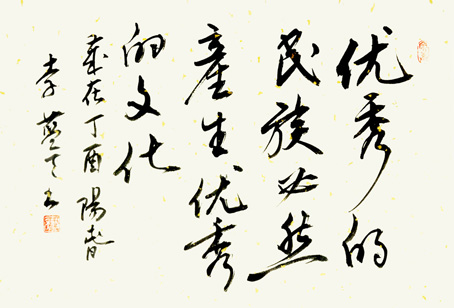 优秀的
民族必然
產生优秀
的文化
歲在丁酉陽春
李